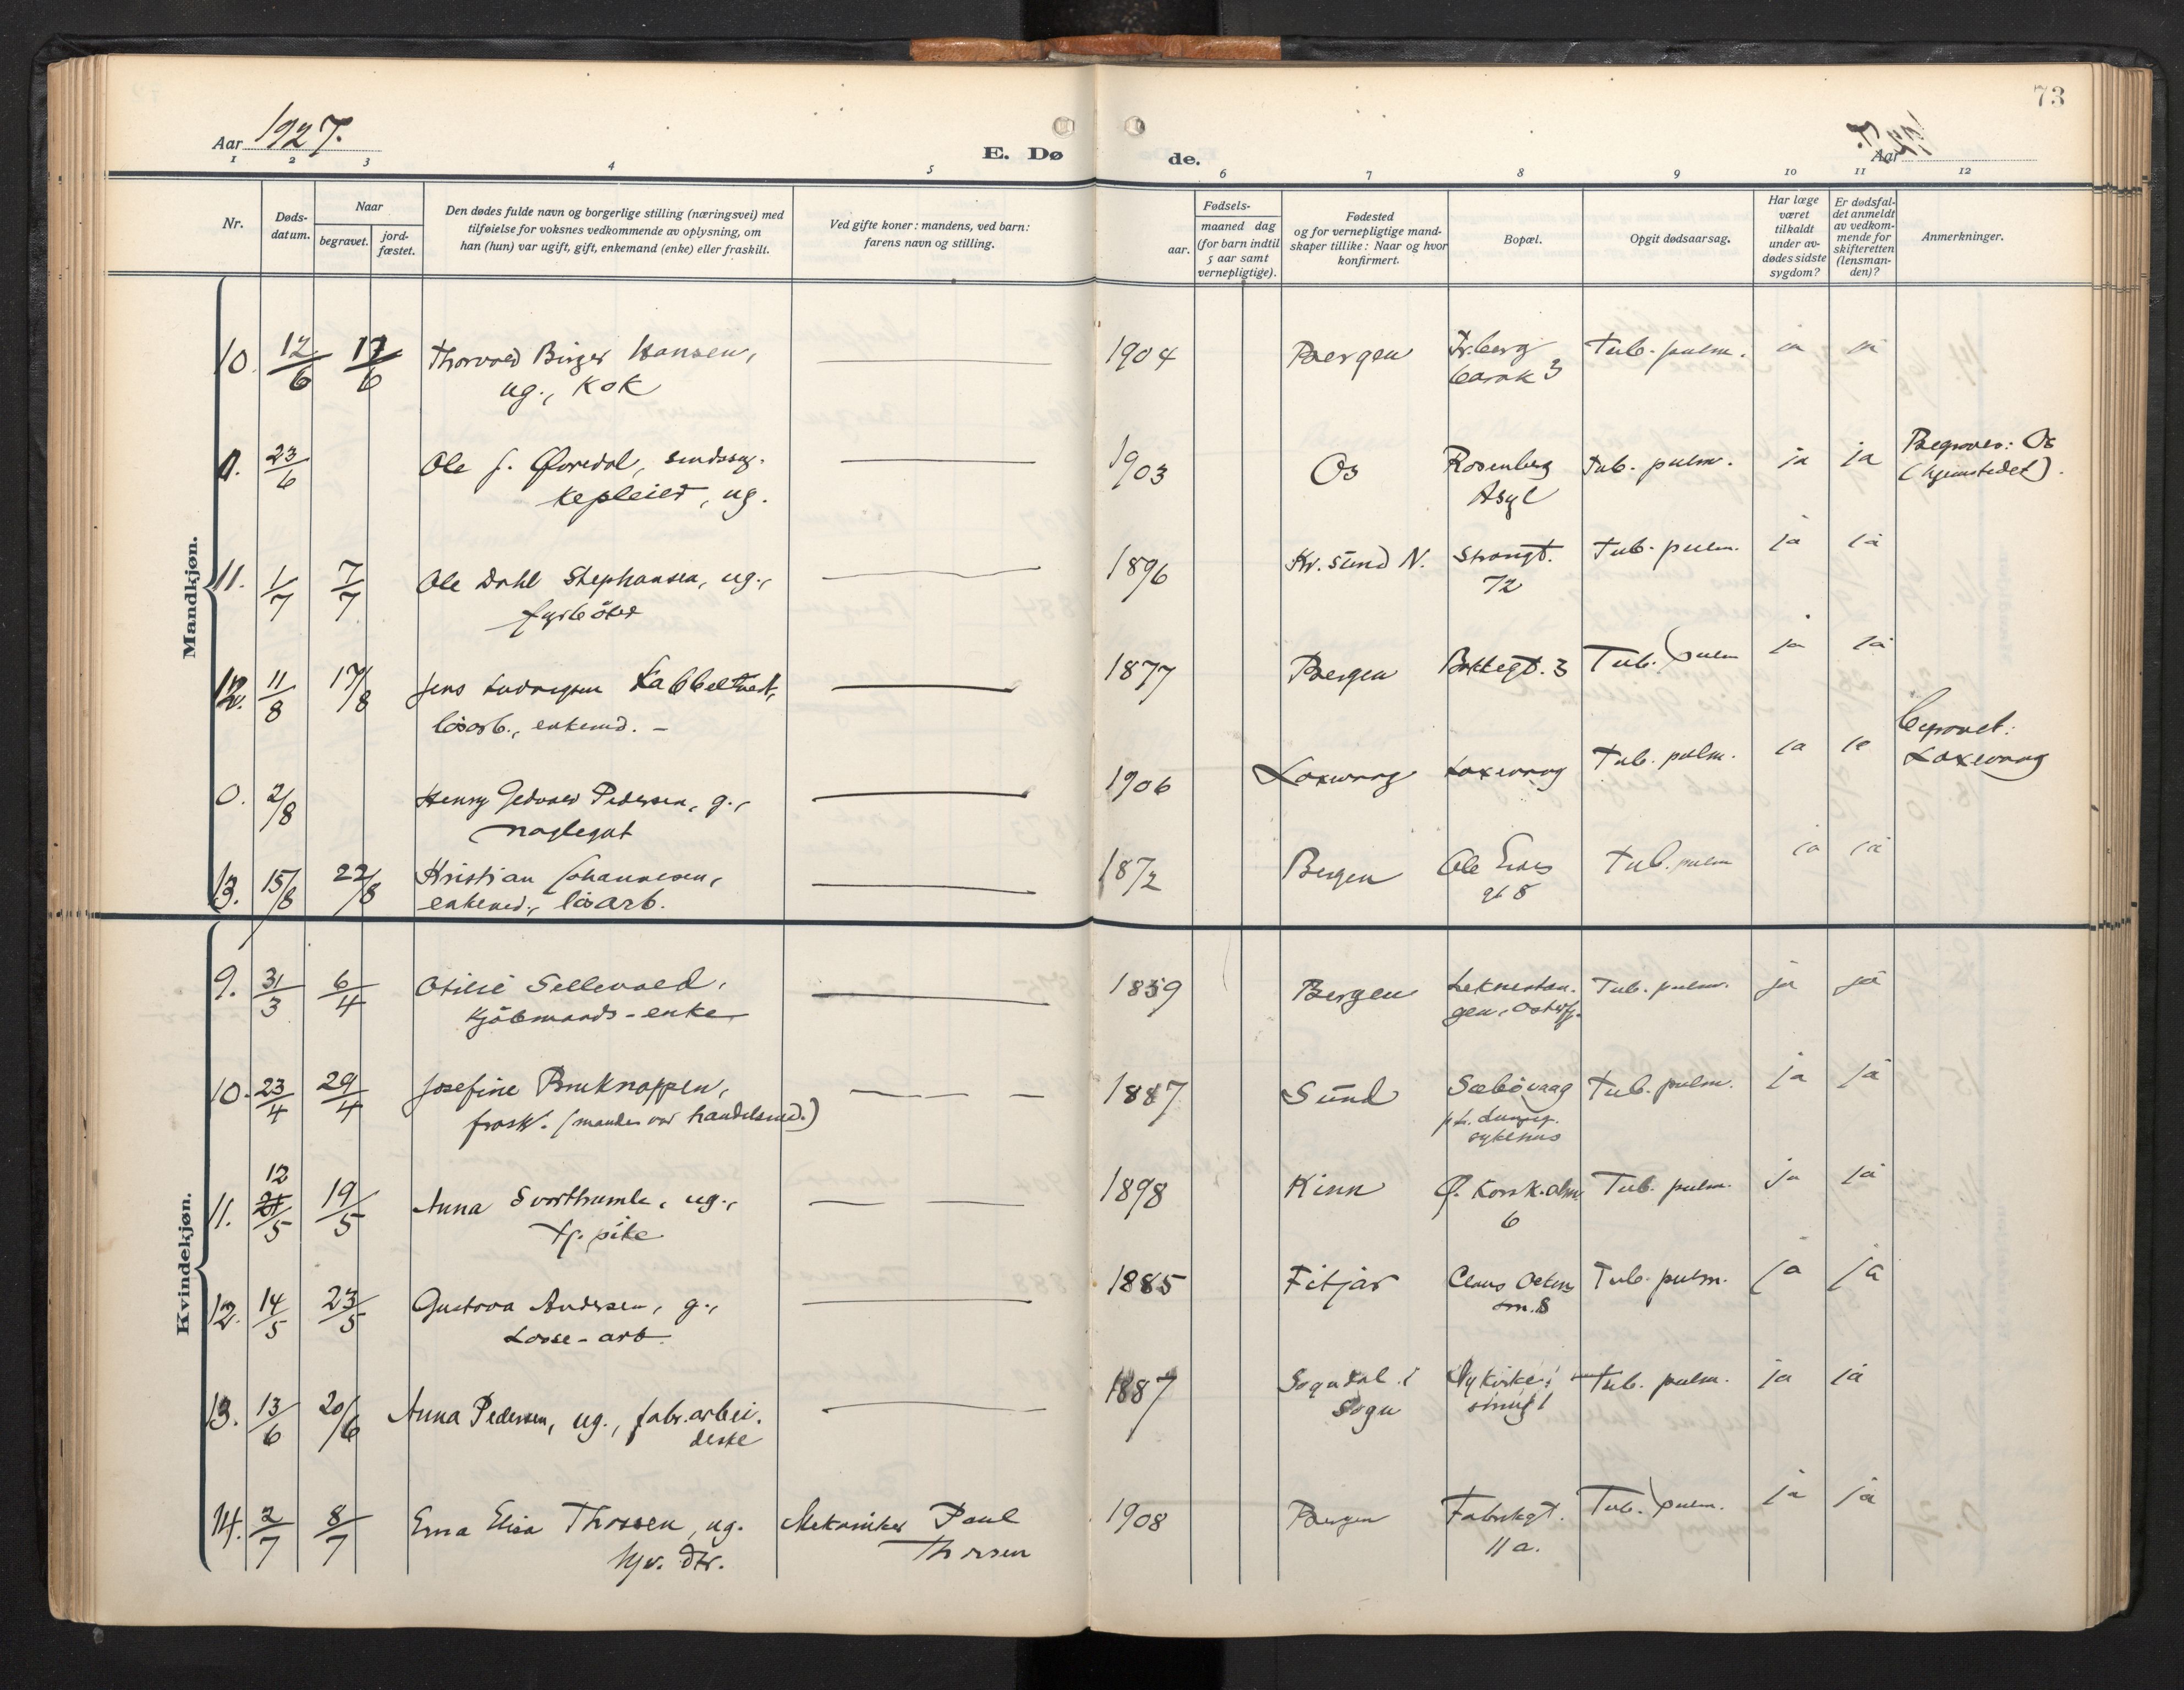 73
Aar 1927.
E. Dø
de.
Aar
1 2 3 4 5 6 7 8 9 10 11 12
Nr.
Døds-
datum.
Naar
begravet.
jord-
fæstet.
Den dødes fulde navn og borgerlige stilling (næringsvei) med
tilføielse for voksnes vedkommende av oplysning, om
han (hun) var ugift, gift, enkemand (enke) eller fraskilt.
Ved gifte koner: mandens, ved barn:
farens navn og stilling.
Fødsels-
aar.
maaned dag
(for barn indtil
5 aar samt
vernepligtige).
Fødested
og for vernepligtige mand-
skaper tillike: Naar og hvor
konfirmert.
Bopæl.
Opgit dødsaarsag.
Har læge
været
tilkaldt
under av-
dødes sidste
sygdom?
Er dødsfal-
det anmeldt
av vedkom-
mende for
skifteretten
(lensman-
den)?
Anmerkninger.
Mandkjøn.
10. 12/6 17/6 Thorvald Birger Hansen, 1904 Bergen Tub. pulm. ja ja
ug., Kok barak 3
0. 23/6 Ole J. Øvredal, sindssy- 1903 Os Rosenberg Tub. pulm. ja ja Begraves: Os
kepleier, ug. Asyl (hjemstedet).
11. 1/7 7/7 Ole Dahl Stephansen, ug., 1896 Kr. sund N. Strangt. Tub. pulm. ja ja
fyrbøter 72
12. 11/8 17/8 Jens Ludvigsen Kabbeltvedt, 1877 Bergen Tub. pulm ja ja
løsarb., enkemd. - 3
0. 2/8 Henry Gedvard Pedersen, g., 1906 Loxevaag Loxevaag Tub. pulm. ja ja begravet:
naglegut Loxevaag
13. 15/8 22/8 Kristian Johannesen, 1872 Bergen Ole Tub. pulm ja ja
enkemd., løsarb. gt 8
Kvindekjøn.
9. 31/3 6/4 Otilie Sellevold, 1859 Bergen Leknestan- Tub. pulm. ja ja
Kjøbmands-enke gen, Osterfj.
10. 23/4 29/4 Josefine Bruknappen, 1887 Sund Sæbøvaag Tub. pulm. ja ja
frask. (manden var handelsmd.) p.t. Lungegr.
sykehus
11. 12/5 19/5 Anna Svorthumle, ug., 1898 Kinn Ø. Korsk.alm. Tub. pulm. ja ja
tj. pike 6
12. 14/5 23/5 Gustava Andersen, g., 1885 Fitjar Claus Ocken Tub. pulm. ja ja
Losse-arb. sm. 8
13. 13/6 20/6 Anna Pedersen, ug., fabr.arbei- 1887 Sogndal i Nykirke- Tub. pulm. ja ja
derske Sogn smug 1
14. 2/7 8/7 Erna Elisa Thorsen, ug. Mekaniker Paul 1908 Bergen Fabrikgt. Tub. pulm. ja ja
hjv. dtr. Thorsen 11 a.